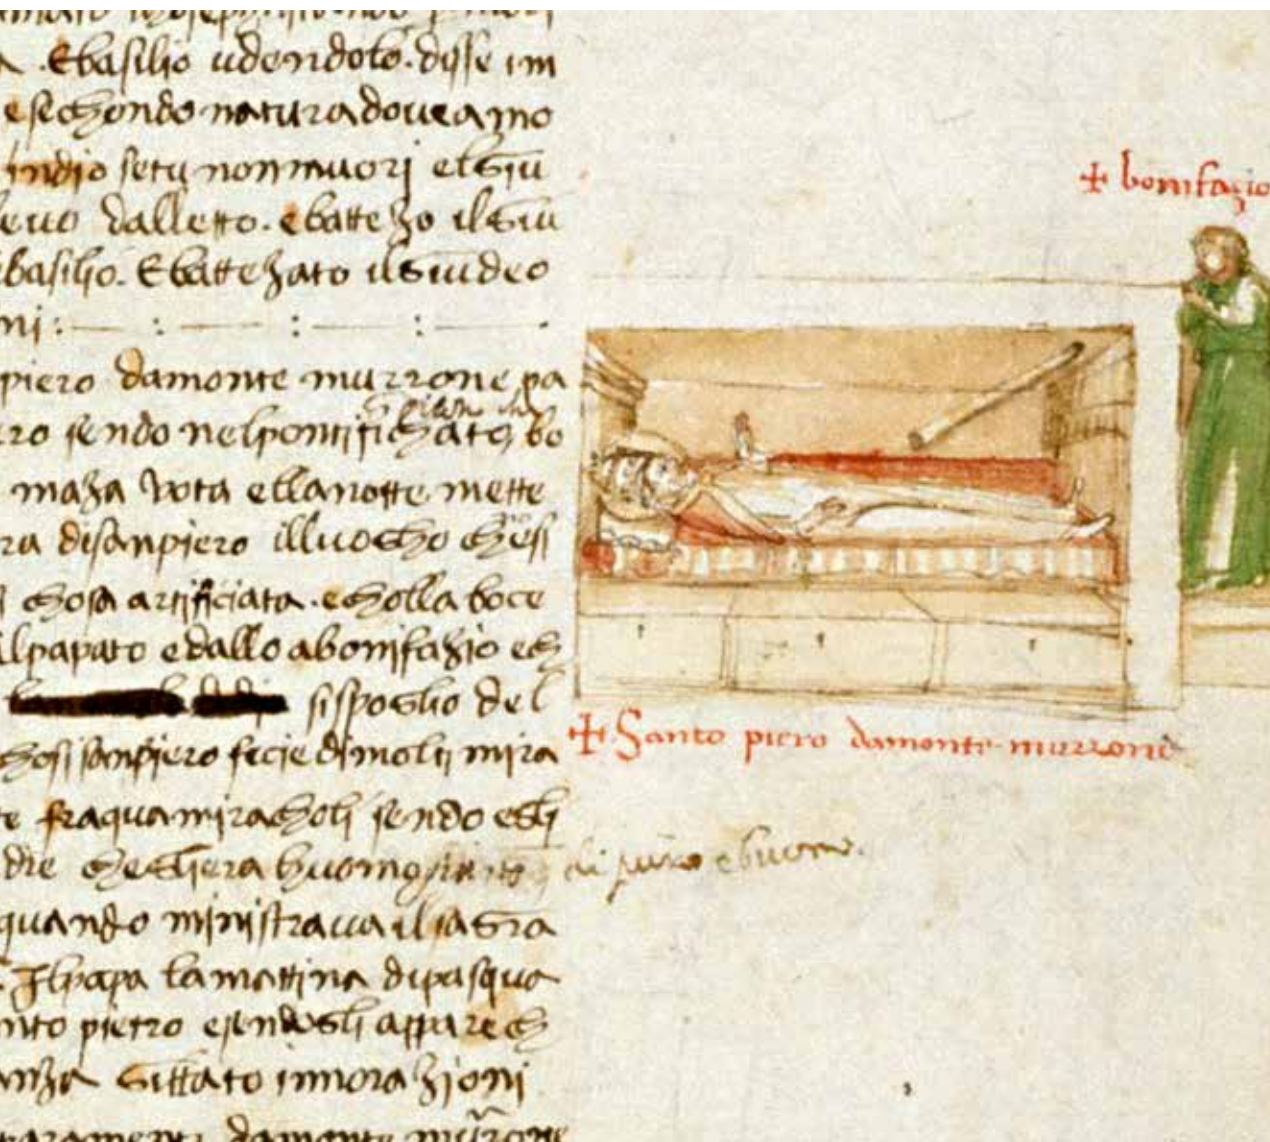 . Ebasilio udendolo. disse im
e sechondo natura doveamo
indio setu non muori el giu
levo dalletto. e battezo il giu
basilio. Ebattezato il giudeo
ni:
piero damonte murrone pa
ro sendo nel pontifichato bo
maza vota ella notte mette
ra disanpiero illuocho chess
chosa artificiata. e cholla boce
lpapato e dallo a bonifazio ech
sispoglio del
chosi sanpiero fecie dimolti mira
te fraqua miracholi sendo egli
dre chegliera huomo di puro e buono.
quando ministrava il sagra
Il papa la mattina di pasqua
nto pietro esendogli apparech
anza gittato innorazioni
damonte murrone
+ bonifazio
+ Santo piero damonte murrone